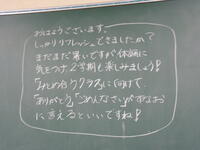 おはようございます。
しっかりリフレッシュできましたか?
まだまだ暑いですが体調に
気をつけ、2学期も楽しみましょう!
「みとめ合うクラス」に向けて、
「ありがとう」「ごめんなさい」がすなおに
言えるといいですね!